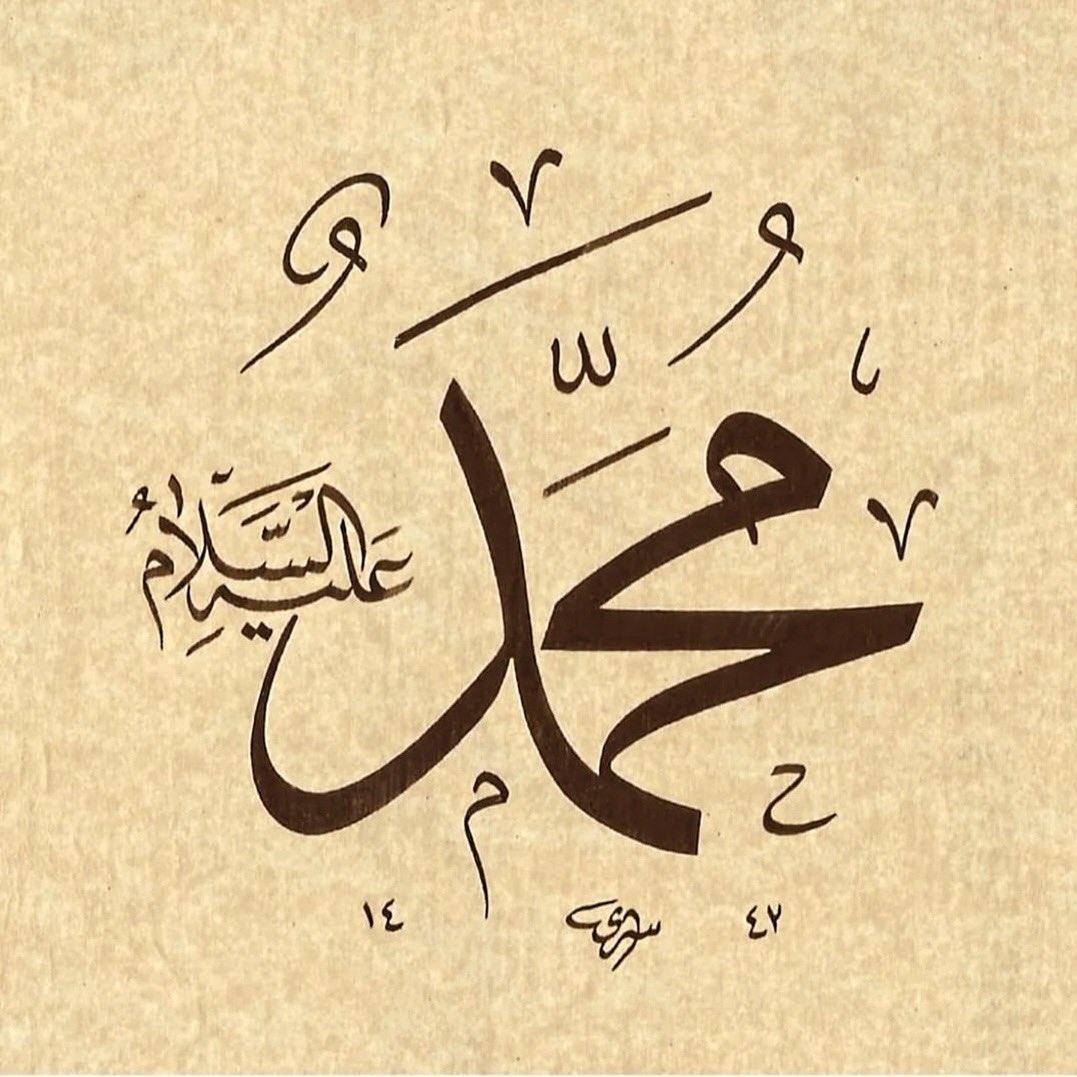 مُحَمَّدٌ
عَلَيهِ السَّلَامُ
م ح
١٤ ٤٢